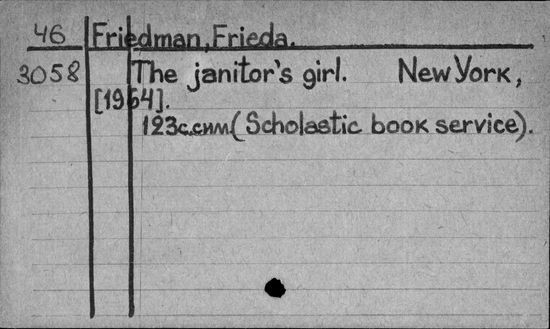 46 Friedman, Frieda.
3058 The janitor's girl. New York,
[1964].
123c.сим (Scholastic book service).